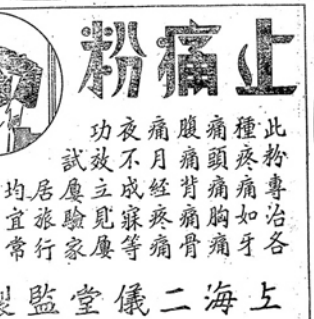 止痛粉
此粉專治各
種疼痛如牙
痛頭痛胸痛
腹痛背痛骨
痛月經疼痛
夜不成寐等
功效立見屢
試屢驗家
居旅行
均宜常
上海二儀堂監製